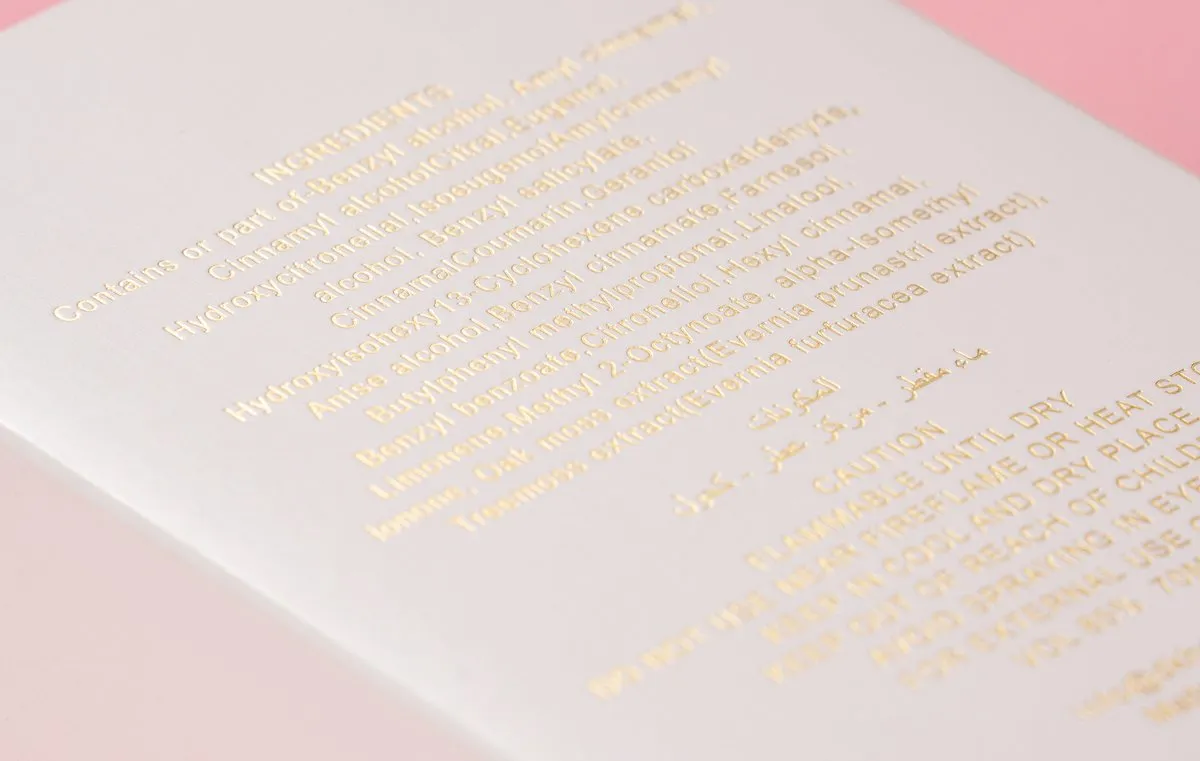 INGREDIENTS
Contains or part of-Benzyl alcohol, Amyl cinnamal,
Cinnamyl alcoholCitral,Eugenol,
Hydroxycitronellal,IsoeugenolAmylcinnamyl
alcohol, Benzyl salicylate,
CinnamalCoumarin,Geraniol
Hydroxyisohexy13-Cyclohexene carboxaldehyde,
Anise alcohol,Benzyl cinnamate,Farnesol,
Butylphenyl methylpropional,Linalool,
Benzyl benzoate,Citronellol,Hexyl cinnamal,
Limonene,Methyl 2-Octynoate, alpha-Isomethyl
Ionone, Oak moss extract((Evernia prunastri extract),
Treemoss extract((Evernia furfuracea extract)
المكونات
ماء مقطر - مركز عطر - كحول
CAUTION
FLAMMABLE UNTIL DRY
DO NOT USE NEAR FIREFLAME OR HEAT
KEEP IN COOL AND DRY PLACE
KEEP OUT OF REACH OF
AVOID SPRAYING IN
FOR EXTERNAL USE
VOL